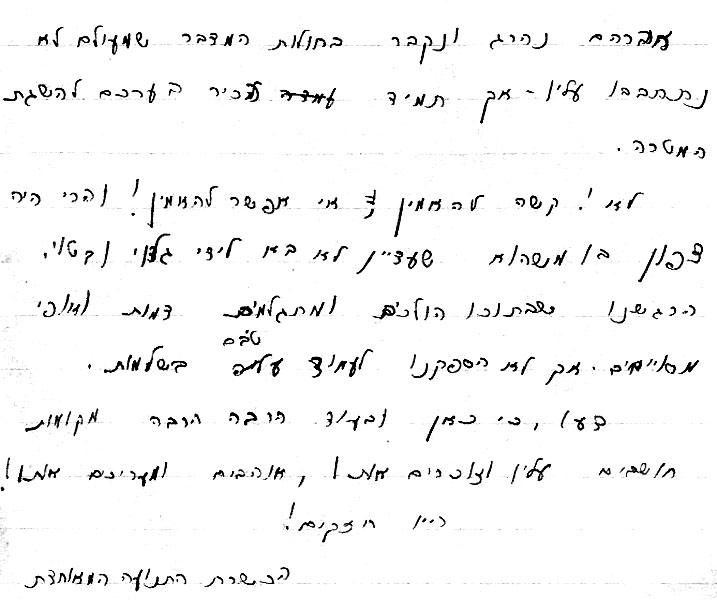 אברהם נהרג ונקבר בחולות המדבר שמעולם לא
נתחבבו עליו - אך תמיד הכיר בערכם להשגת
המטרה.
לא! קשה להאמין אי אפשר להאמין! והרי היה
צפון בו משהוא שעדיין לא בא לידי גלוי ובטוי.
הרגשנו שבתוכו הולכים ומתגלמים דמות ואופי
מסויימים. אך לא הספקנו לעמוד על טיבם בשלמות.
דעו, כי כאן ובעוד הרבה הרבה מקומות
חושבים עליו וזוכרים אותו, אוהבים ומעריכים אותו!
היו חזקים!
הכשרת התנועה המאוחדת